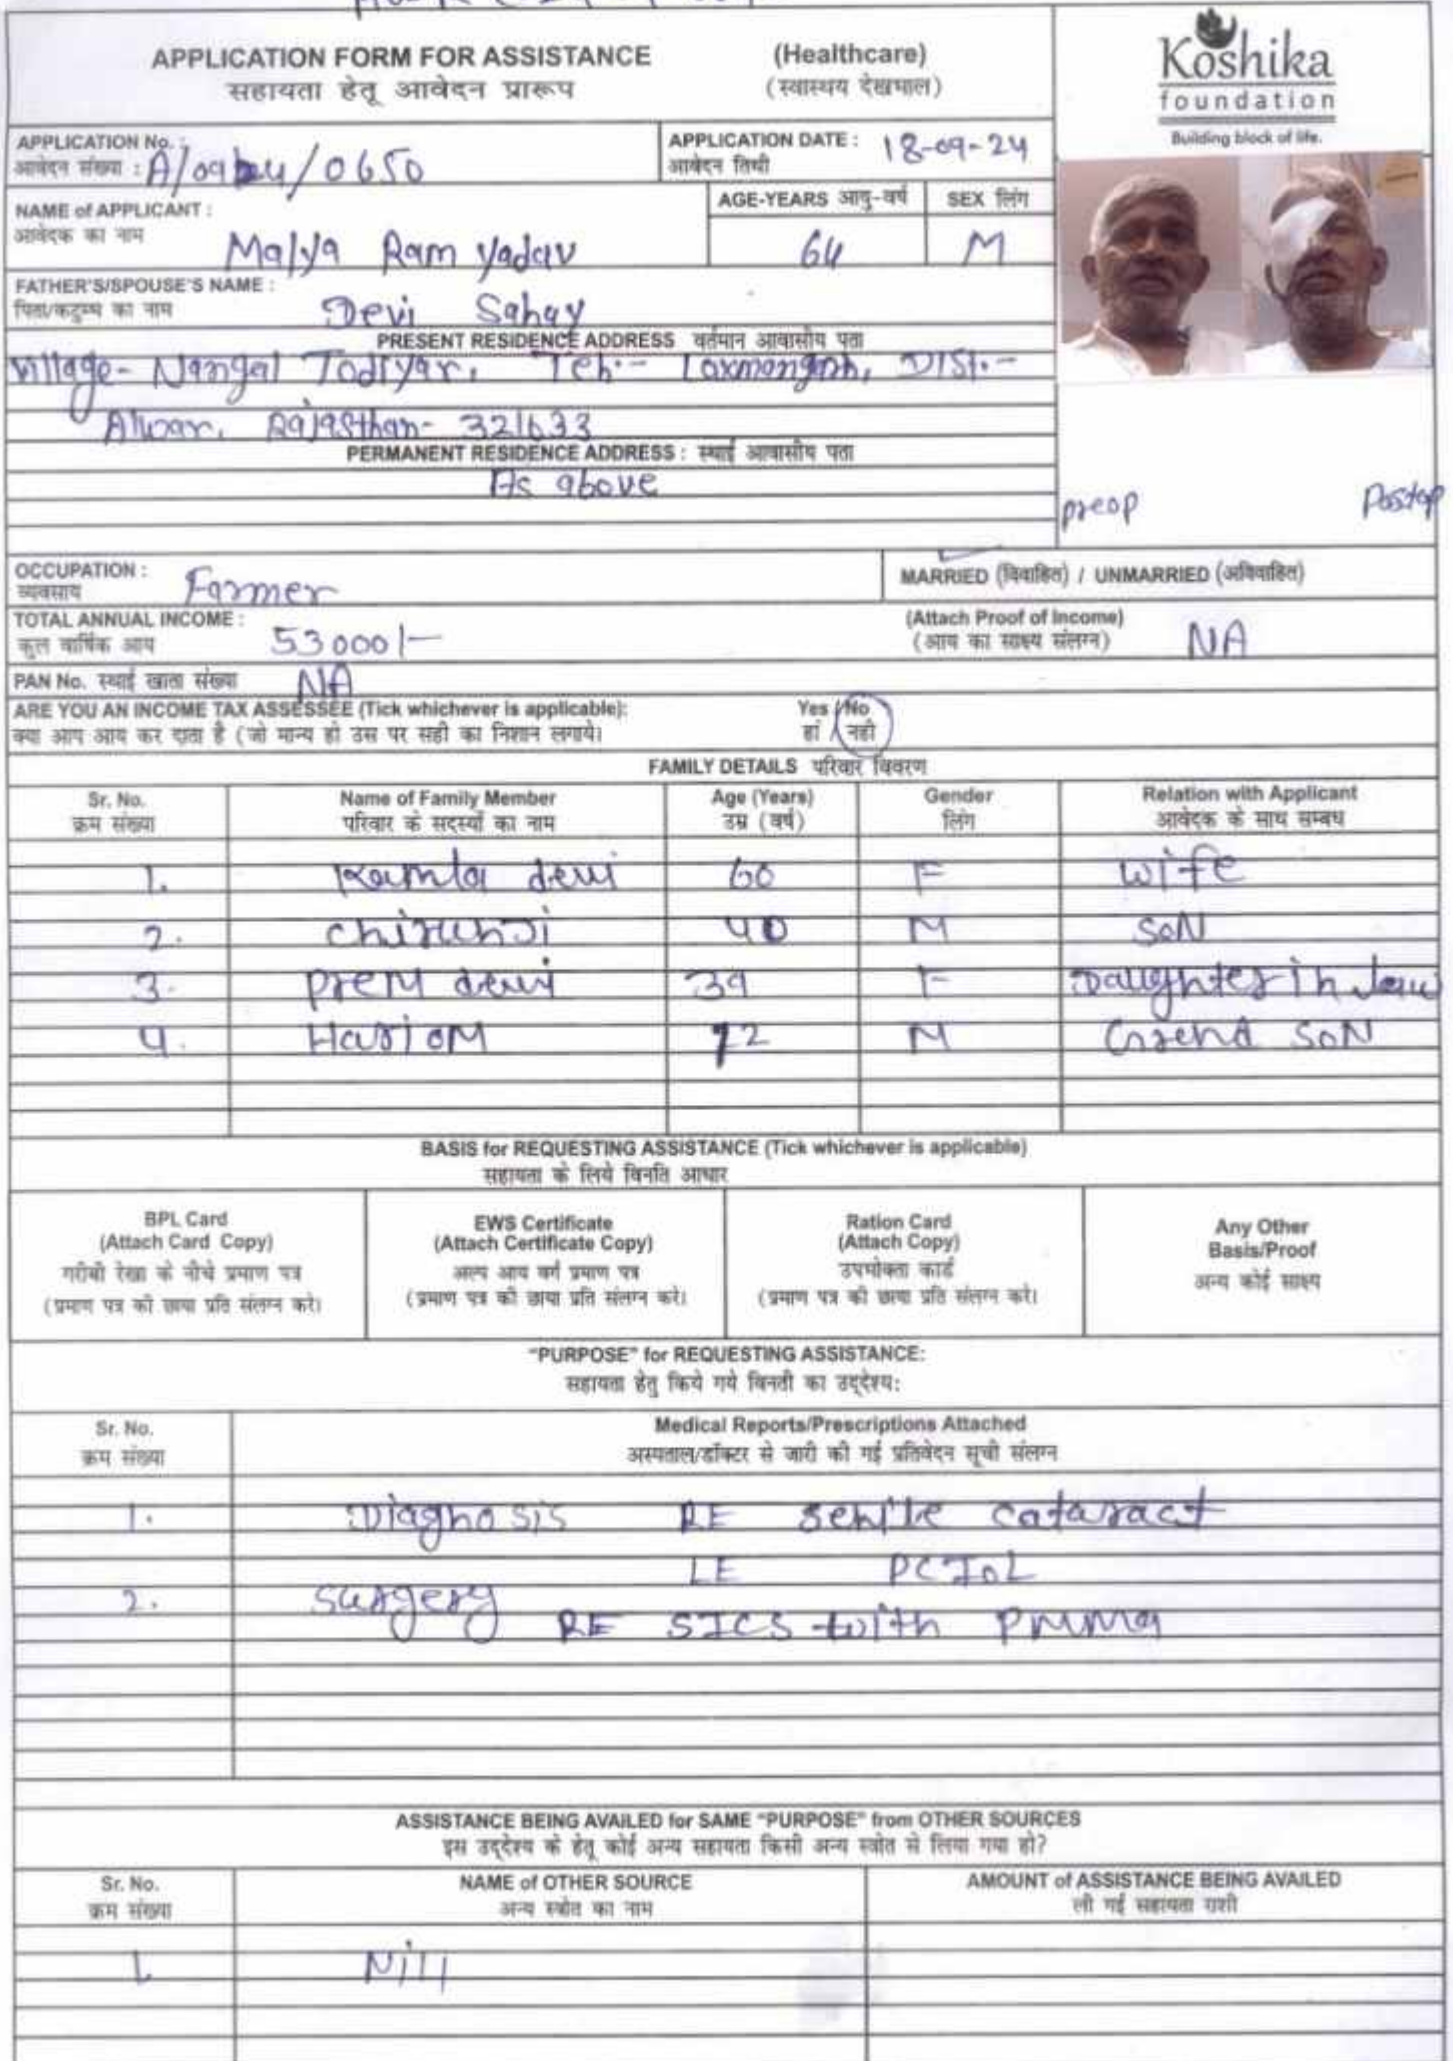 APPLICATION FORM FOR ASSISTANCE (Healthcare)
सहायता हेतू आवेदन प्रारूप (स्वास्थय देखभाल)
Koshika
foundation
Building block of life.
APPLICATION No. :
आवेदन संख्या : A/0924/0650
APPLICATION DATE : 18-09-24
आवेदन तिथी
NAME of APPLICANT :
आवेदक का नाम
Malya Ram Yadav
AGE-YEARS आयु-वर्ष
64
SEX लिंग
M
FATHER'S/SPOUSE'S NAME :
पिता/कटुम्ब का नाम
Devi Sahay
PRESENT RESIDENCE ADDRESS वर्तमान आवासीय पता
Village- Nangal Todiyar, Teh:- Laxmangarh, DIST.-
Alwar, Rajasthan- 321633
PERMANENT RESIDENCE ADDRESS : स्थाई आवासीय पता
As above
preop Postop
OCCUPATION :
व्यवसाय
Farmer
MARRIED (विवाहित) / UNMARRIED (अविवाहित)
TOTAL ANNUAL INCOME :
कुल वार्षिक आय
53000/-
(Attach Proof of Income)
(आय का साक्ष्य संलग्न)
NA
PAN No. स्थाई खाता संख्या NA
ARE YOU AN INCOME TAX ASSESSEE (Tick whichever is applicable): Yes / No
क्या आप आय कर दाता है (जो मान्य हो उस पर सही का निशान लगाये। हां / नही
FAMILY DETAILS परिवार विवरण
Sr. No. Name of Family Member Age (Years) Gender Relation with Applicant
क्रम संख्या परिवार के सदस्यों का नाम उम्र (वर्ष) लिंग आवेदक के साथ सम्बध
1. Kamla devi 60 F wife
2. chirunji 40 M SON
3. prem devi 39 F Daughter in law
4. Hariom 12 M Grend SON
BASIS for REQUESTING ASSISTANCE (Tick whichever is applicable)
सहायता के लिये विनति आधार
BPL Card
(Attach Card Copy)
गरीबी रेखा के नीचे प्रमाण पत्र
(प्रमाण पत्र की छाया प्रति संलग्न करे।
EWS Certificate
(Attach Certificate Copy)
अल्प आय वर्ग प्रमाण पत्र
(प्रमाण पत्र की छाया प्रति संलग्न करे।
Ration Card
(Attach Copy)
उपभोक्ता कार्ड
(प्रमाण पत्र की छाया प्रति संलग्न करे।
Any Other
Basis/Proof
अन्य कोई साक्ष्य
"PURPOSE" for REQUESTING ASSISTANCE:
सहायता हेतु किये गये विनती का उद्देश्य:
Sr. No. Medical Reports/Prescriptions Attached
क्रम संख्या अस्पताल/डॉक्टर से जारी की गई प्रतिवेदन सूची संलग्न
1. Diagnosis RE senile cataract
LE PCIOL
2. Surgery
RE SICS with PMMA
ASSISTANCE BEING AVAILED for SAME "PURPOSE" from OTHER SOURCES
इस उद्देश्य के हेतू कोई अन्य सहायता किसी अन्य स्त्रोत से लिया गया हो?
Sr. No. NAME of OTHER SOURCE AMOUNT of ASSISTANCE BEING AVAILED
क्रम संख्या अन्य स्त्रोत का नाम ली गई सहायता राशी
1. Nill